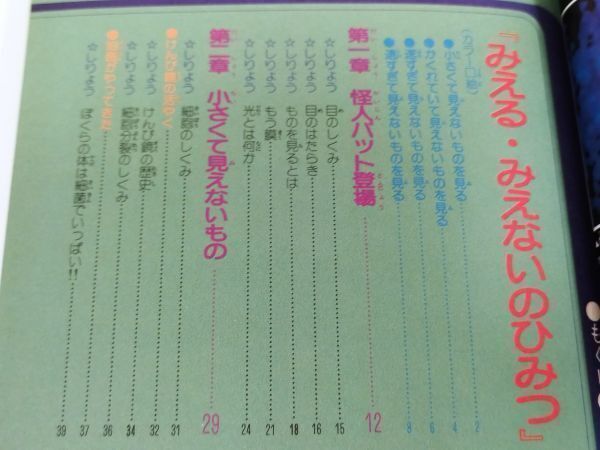 『みえる・みえないのひみつ』
(カラー口絵)
●小さくて見えないものを見る……2
●かくれていて見えないものを見る……4
●速すぎて見えないものを見る……6
●遠すぎて見えないものを見る……8
第一章 怪人バット登場……12
☆しりょう 目のしくみ……15
☆しりょう 目のはたらき……16
☆しりょう ものを見るとは……18
☆しりょう もう膜……21
☆しりょう 光とは何か……24
第二章 小さくて見えないもの……29
☆しりょう 細胞のしくみ……31
●けんび鏡の活やく……32
☆しりょう けんび鏡の歴史……34
☆しりょう 細胞分裂のしくみ……36
●細菌がやってきた……37
☆しりょう ぼくらの体は細菌でいっぱい!!……39